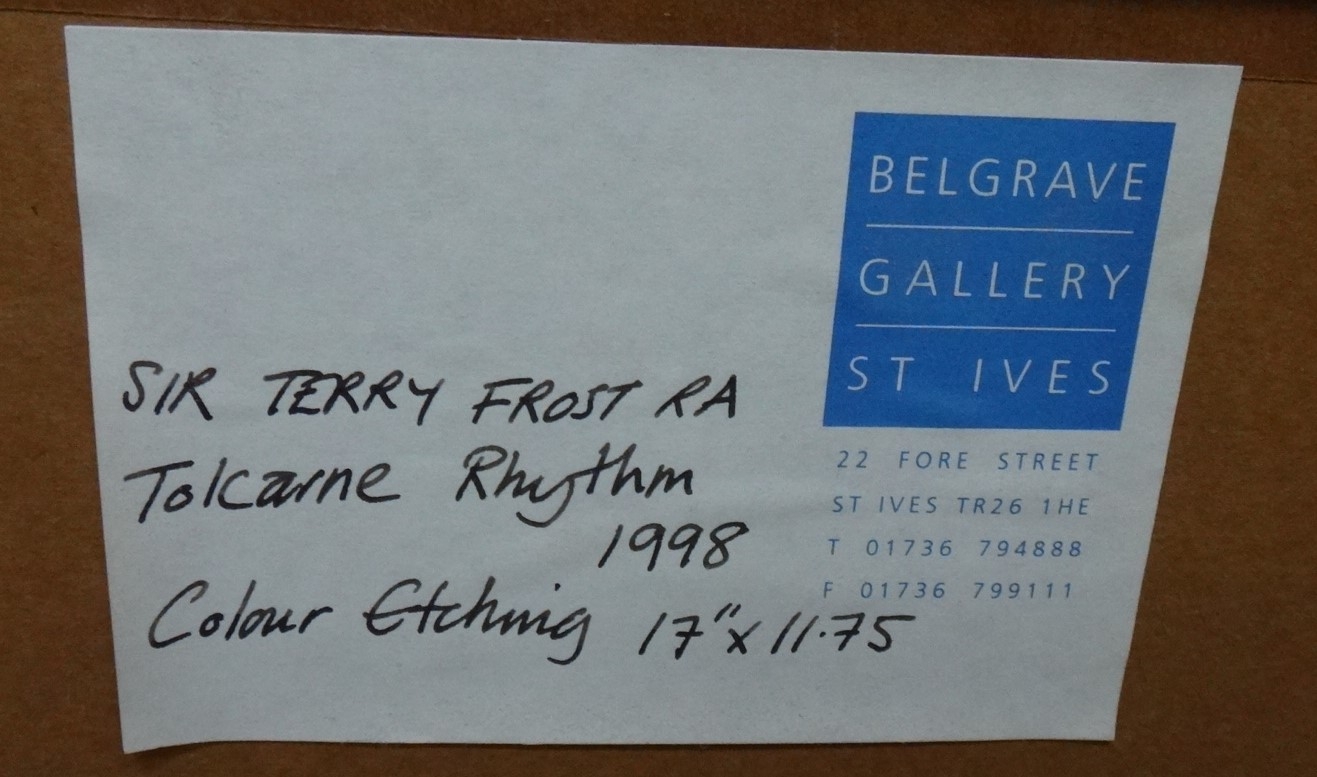 BELGRAVE
GALLERY
ST IVES
22 FORE STREET
ST IVES TR26 1HE
T 01736 794888
F 01736 799111
SIR TERRY FROST RA
Tolcarne Rhythm
1998
Colour Etching 17" x 11.75